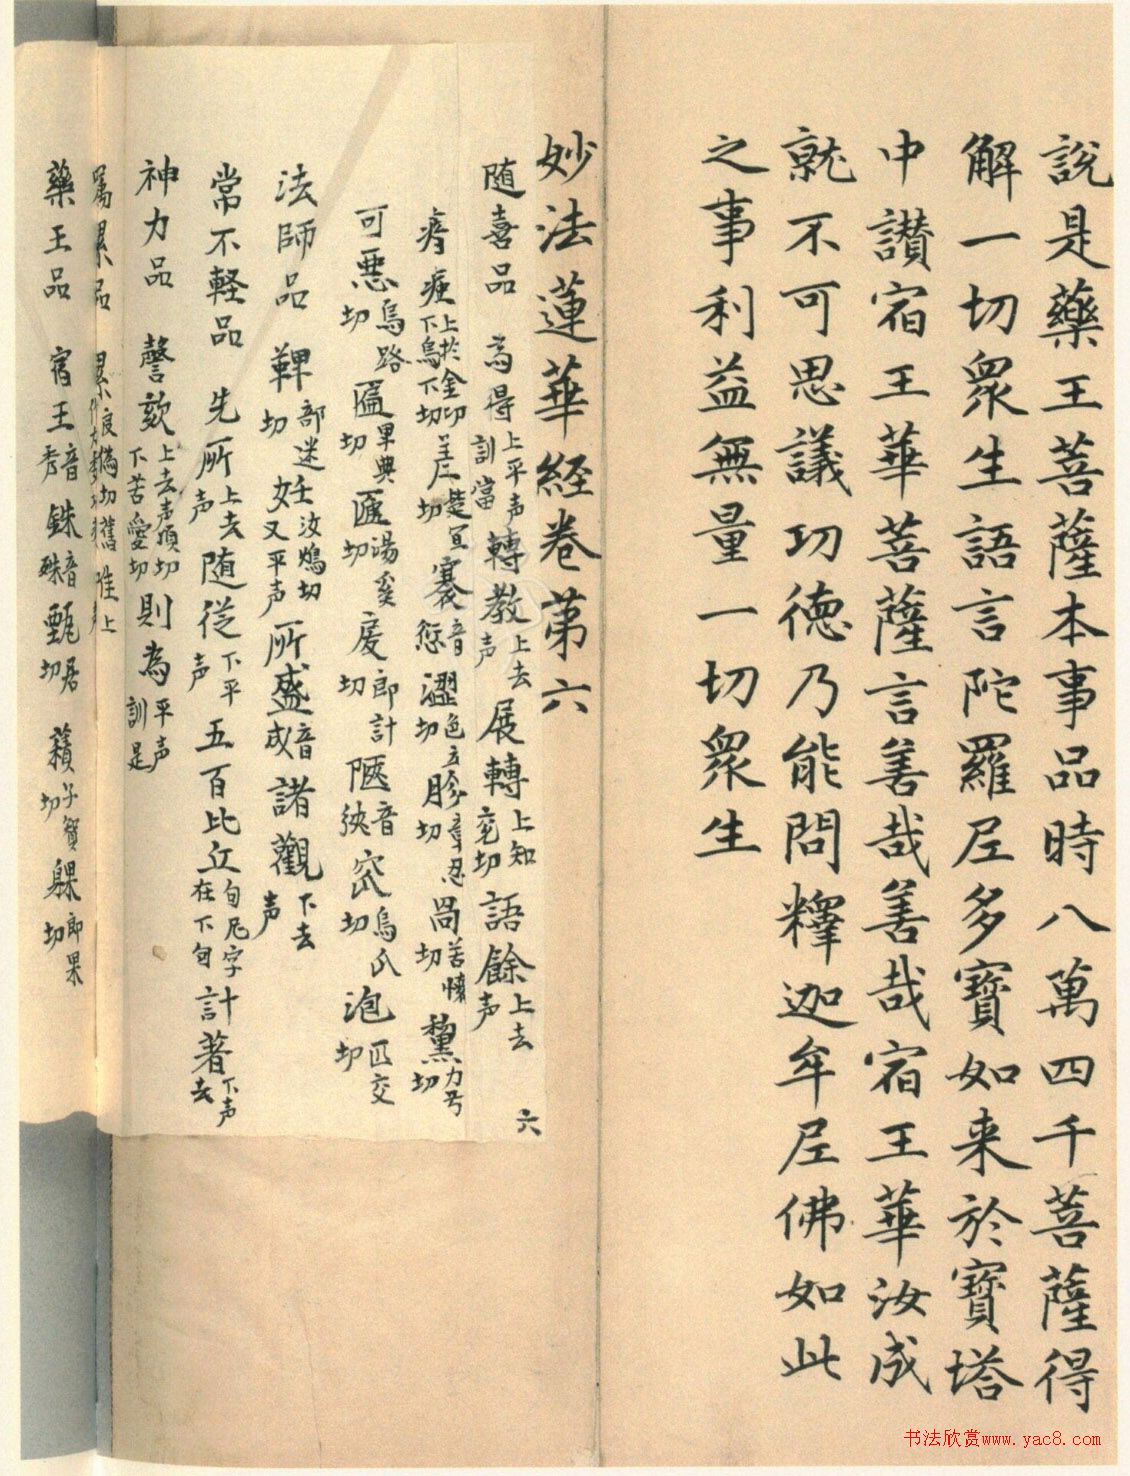 說是藥王菩薩本事品時八萬四千菩薩得
解一切眾生語言陀羅尼多寶如来於寶塔
中讃宿王華菩薩言善哉善哉宿王華汝成
就不可思議功德乃能問釋迦牟尼佛如此
之事利益無量一切眾生
妙法蓮華経卷第六
随喜品 為得上平声訓當 轉教上去声 展轉上知兖切 語餘上去声 六
瘖瘂上於金切下烏下切 褰音愆 澀色立切 胗章忍切 咼苦懷切
可惡烏路切 匾畢典切 匾湯奚切 戾郎計切 陋音 窊烏瓜切 泡匹交切
法師品 鞞部迷切 妊汝鴆切又平声 所盛音成 諸觀下去声
常不軽品 先所上去声 随從下平声 五百比丘句尼字在下句 計著下声去
神力品 謦欬上去声頃切下苦愛切 則為平声訓是
囑累品
藥王品 宿王音秀 銖音殊 甄居切 積子智切 躶郎果切
书法欣赏www.yac8.com